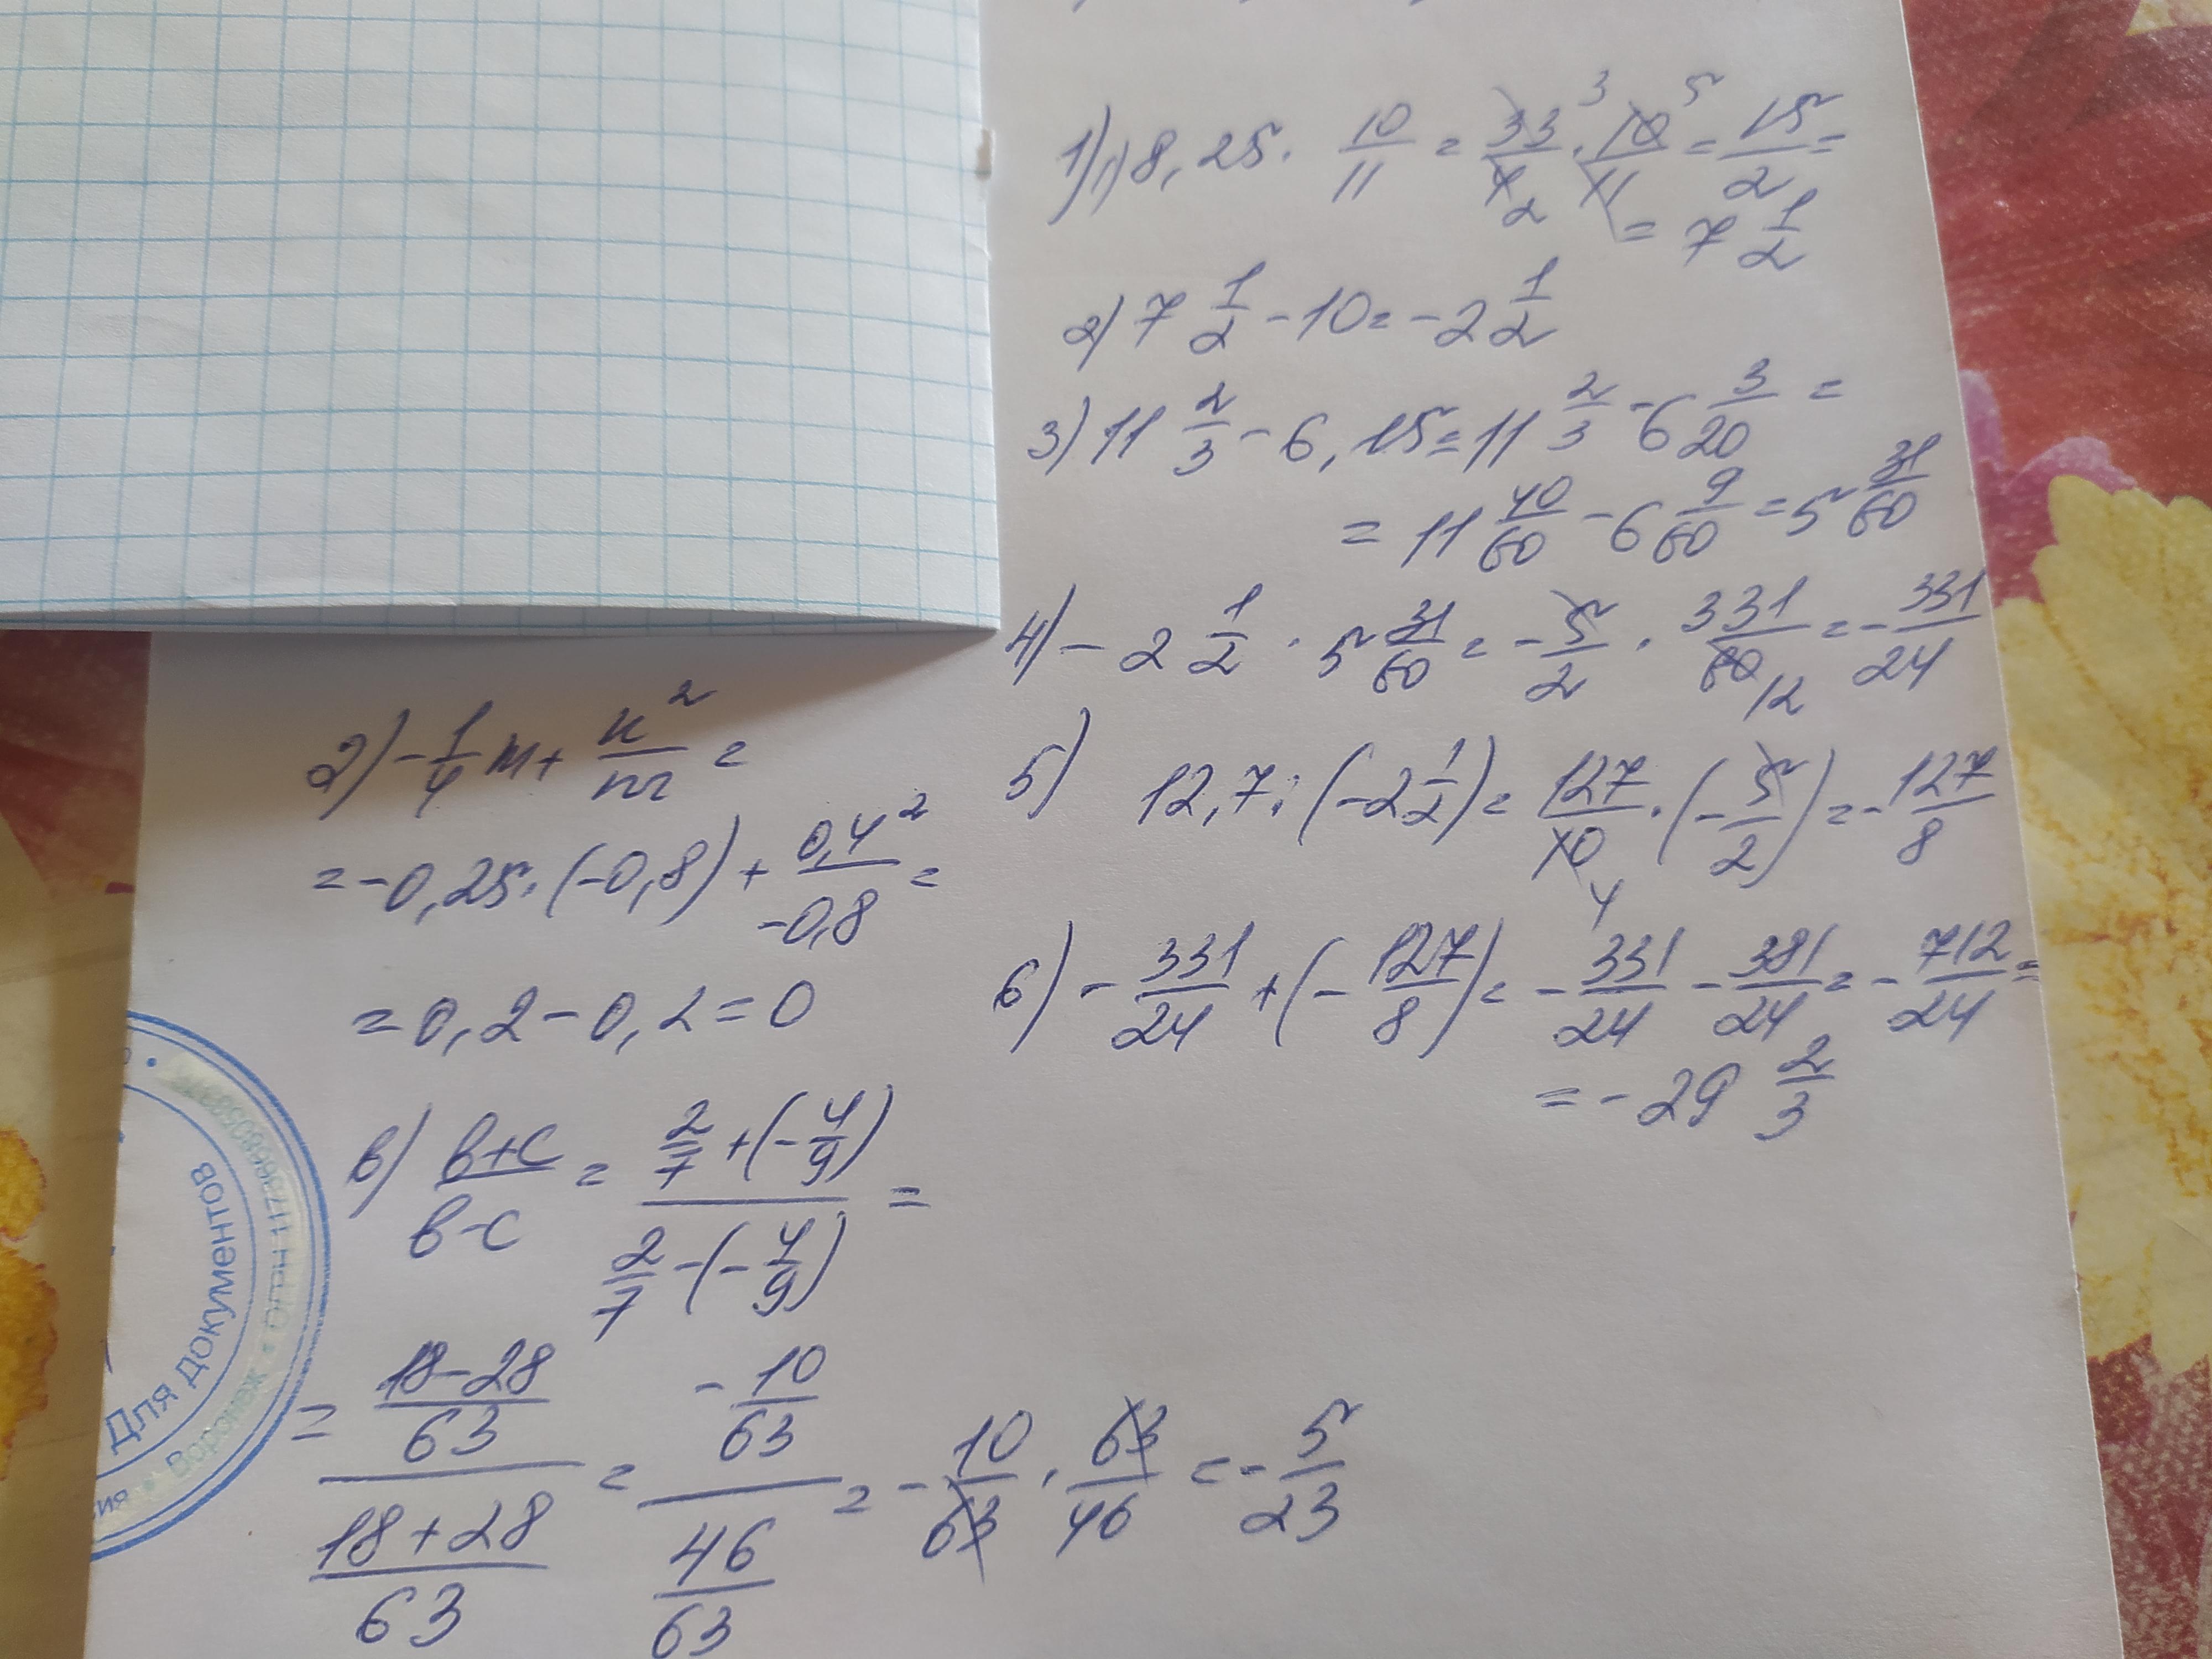 1) 1) 8,25 · 10/11 = 33/4 · 10/11 = 15/2 =
3 5
2
= 7 1/2
2) 7 1/2 - 10 = -2 1/2
3) 11 2/3 - 6,15 = 11 2/3 - 6 3/20 =
= 11 40/60 - 6 9/60 = 5 31/60
4) - 2 1/2 · 5 31/60 = - 5/2 · 331/60 = - 331/24
12
5) 12,7 : (-2 1/2) = 127/10 · (- 5/2) = - 127/8
4
6) - 331/24 + (- 127/8) = - 331/24 - 381/24 = - 712/24 =
= - 29 2/3
2) - 1/4 m + n²/m =
= -0,25 · (-0,8) + 0,4²/-0,8 =
= 0,2 - 0,2 = 0
в) в+с/в-с = 2/7 + (- 4/9) / 2/7 - (- 4/9) =
= 18-28/63 / 18+28/63 = - 10/63 / 46/63 = - 10/63 · 63/46 = - 5/23
Для документов
Воронеж